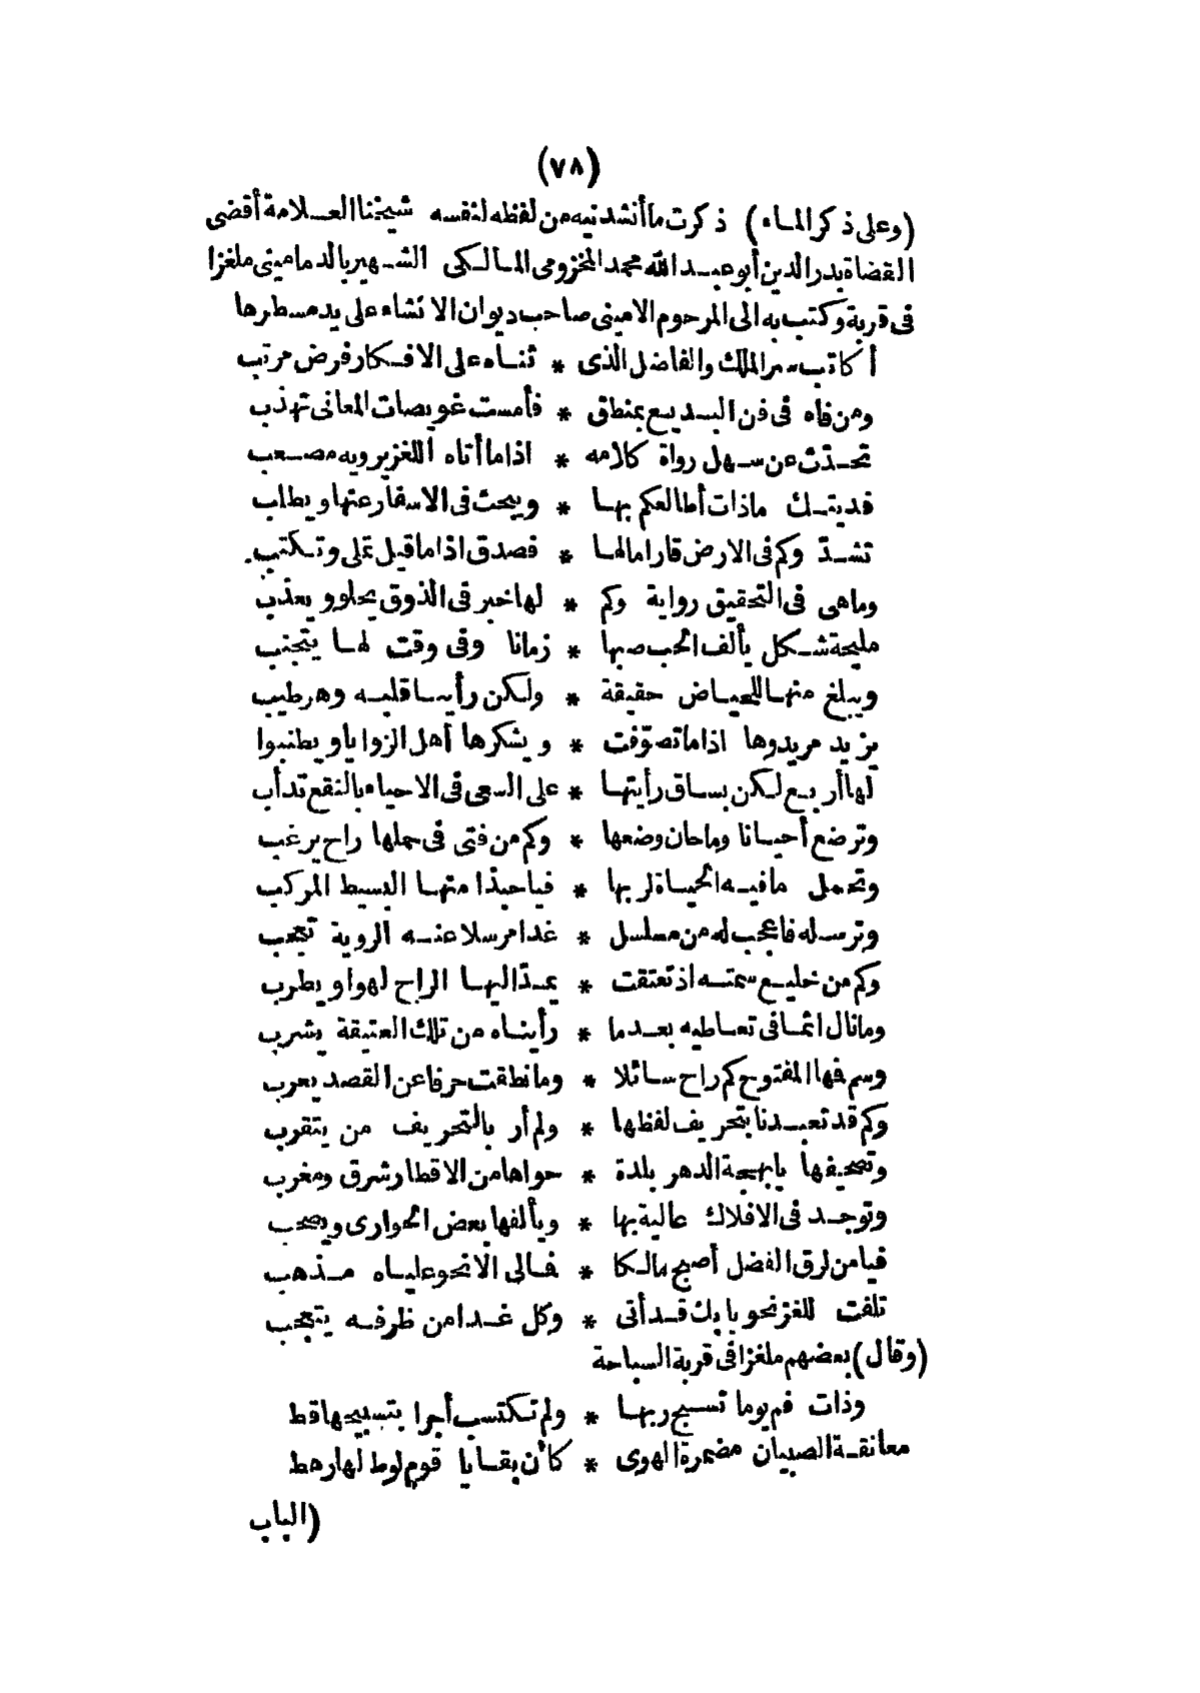 (٧٨)
(وعلى ذكر الماء) ذكرت ما أنشدنيه من لفظه لنفسه شيخنا العلامة أقضى
القضاة بدر الدين أبو عبد الله محمد المخزومى المالكى الشهير بالدمامينى ملغزا
فى قربة وكتب به الى المرحوم الامينى صاحب ديوان الانشاء على يد مسطرها
أكاتب سر الملك والفاضل الذى * ثناه على الافكار فرض مرتب
ومن فاه فى فن البديع بمنطق * فأمست غويصات المعانى تهذب
تحدّث عن سهل رواة كلامه * اذا ما أتاه اللغز يرويه مصعب
فديتك ماذات أطالعكم بها * ويبحث فى الاسفار عنها ويطلب
تشدّ وكم فى الارض قار امالها * فصدق اذا ماقيل تملى وتكتب
وماهى فى التحقيق رواية وكم * لها خبر فى الذوق يحلو ويعذب
مليحة شكل يألف الحب صبها * زمانا وفى وقت لها يتجنب
ويبلغ منها للحياض حقيقة * ولكن رأينا قلبه وهو طيب
يزيد مريدوها اذا ما تصوّفت * ويشكرها أهل الزوايا ويطنبوا
لها أربع لكن بساق رأيتها * على السعى فى الاحياء بالنقع تدأب
وترضع أحيانا وماحان وضعها * وكم من فتى فى حملها راح يرغب
وتحمل مافيه الحياة لربها * فياحبذا منها البسيط المركب
وترسله فاعجب له من مسلسل * غدا مرسلا عنه الروية تعجب
وكم من خليع سمته اذ تعتقت * يمدّ اليها الراح لهوا ويطرب
ومانال اثما فى تعاطيه بعدما * رأيناه من تلك العتيقة يشرب
وسم فها المفتوح كم راح سائلا * ومانطقت حرفا عن القصد يعرب
وكم قد تعبدنا بتحريف لفظها * ولم أر بالتحريف من يتقرب
وتصحيفها يا بهجة الدهر بلدة * حواها من الاقطار شرق ومغرب
وتوجد فى الافلاك عالية بها * ويألفها بعض الحوارى ويصحب
فيامن لرق الفضل أصبح مالكا * فمالى الا نحو علياه مذهب
تلفت للغز نحو بابك قد أتى * وكل غدا من ظرفه يتعجب
(وقال) بعضهم ملغزا فى قربة السباحة
وذات فم يوما تسبح ربها * ولم تكتسب أجرا بتسبيحها قط
معانقة الصبيان مضمرة الهوى * كأن بقايا قوم لوط لها رهط
(الباب